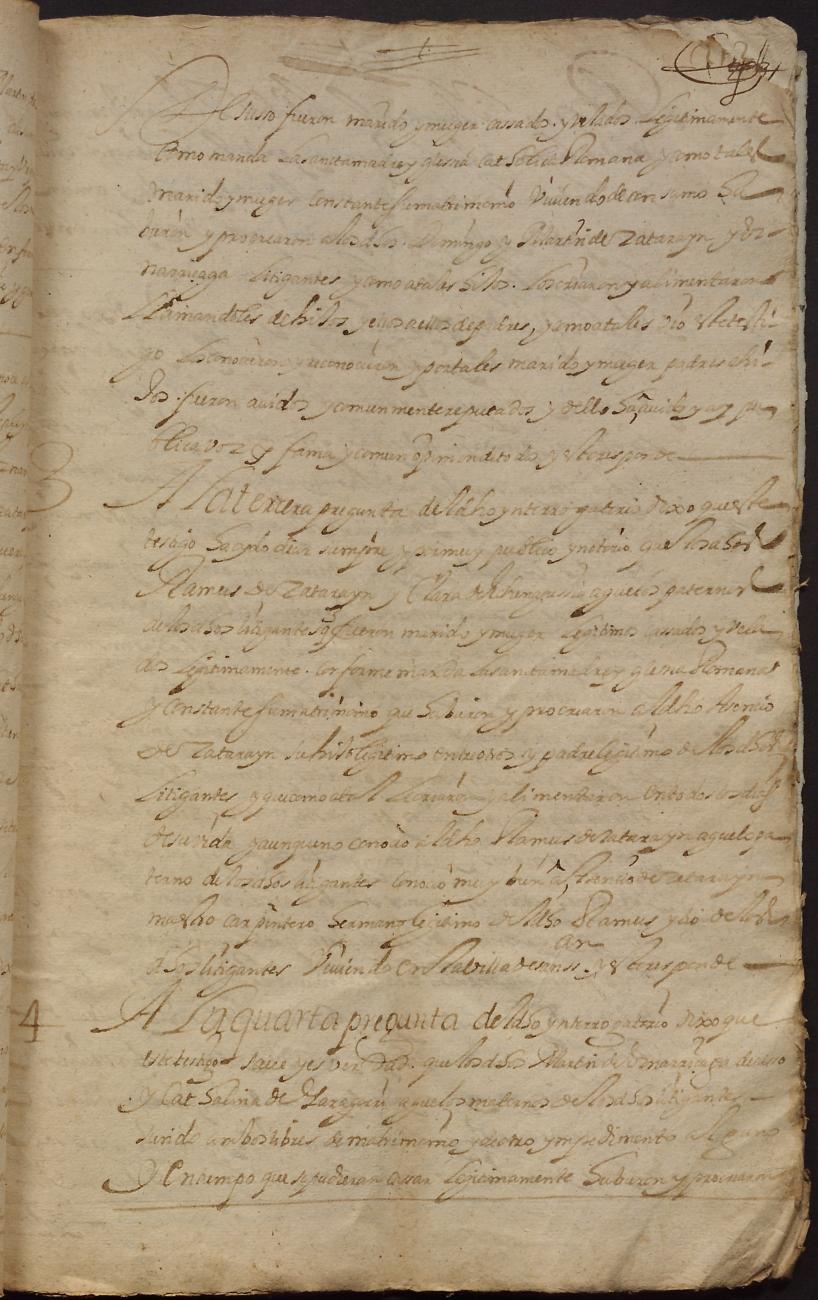 De suso fueron marido y muger cassados y velados legitimamente
como manda la santa madre yglesia catholica Romana y como tales
marido y muger constante su matrimonio viviendo de consuno hu
bieron y procrearon a los dhos Domingo y Martin de Zatarayn y
narriaga litigantes y como a tales hijos los criaron y alimentaron
llamandoles de hijos y ellos a ellos de padres, y como a tales vio este testi
go los conocieron y reconocian y por tales marido y muger padres e hi
jos fueron auidos y comunmente reputados y dello ha auido y ay pu
blica voz y fama y comun opinion de todos y esto responde
3 A la tercera pregunta del dho ynterrogatorio dixo que este
testigo ha oydo dezir siempre y por muy publico y notorio que los dhos
Ramus de Zatarayn y Clara de aguelos paternos
de los dhos litigantes fueron marido y muger legitimos cassados y vela
dos legitimamente conforme manda la santa madre yglesia Romana
y constante su matrimonio que hubieron y procrearon al dho Asencio
de Zatarayn su hijo legitimo entre otros y padre legitimo de los dhos
litigantes y que como a tal le criaron y alimentaron en todos los dias
de su vida y aunque no conocio al dho Ramus de Zatarayn aguelo pa
terno de los dhos litigantes conocio muy bien a Asencio de Zatarayn
macho carpintero hermano legitimo del dho Ramus y tio de los
dhos litigantes viviendo en la villa de y esto responde
4 A la quarta pregunta del dho ynterrogatorio dixo que
este testigo saue y es verdad que los dhos Martin de narriaga de suso
y Cathalina de aguelos maternos de los dhos litigantes
siendo ambos libres de matrimonio y de otro ympedimento alguno
y en tiempo que se pudieran casar legitimamente hubieron y procrearon